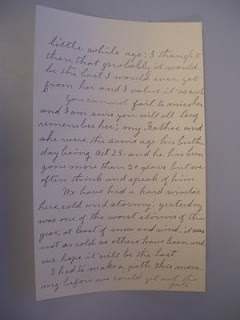 little while ago; I thought
then that probably it would
be the last I would ever get
from her and I value it as such
You cannot fail to miss her,
and I am sure you will all long
remember her; my Father and
she were the same age his birth
day being Oct 23 - and he has been
gone more than 20 years but we
often think and speak of him
We have had a hard winter
here cold and stormy, yesterday
was one of the worst storms of the
year, at least of snow and wind, it was
not as cold as others have been and
we hope it will be the last
I had to make a path this morn-
ing before we could get out the
gate